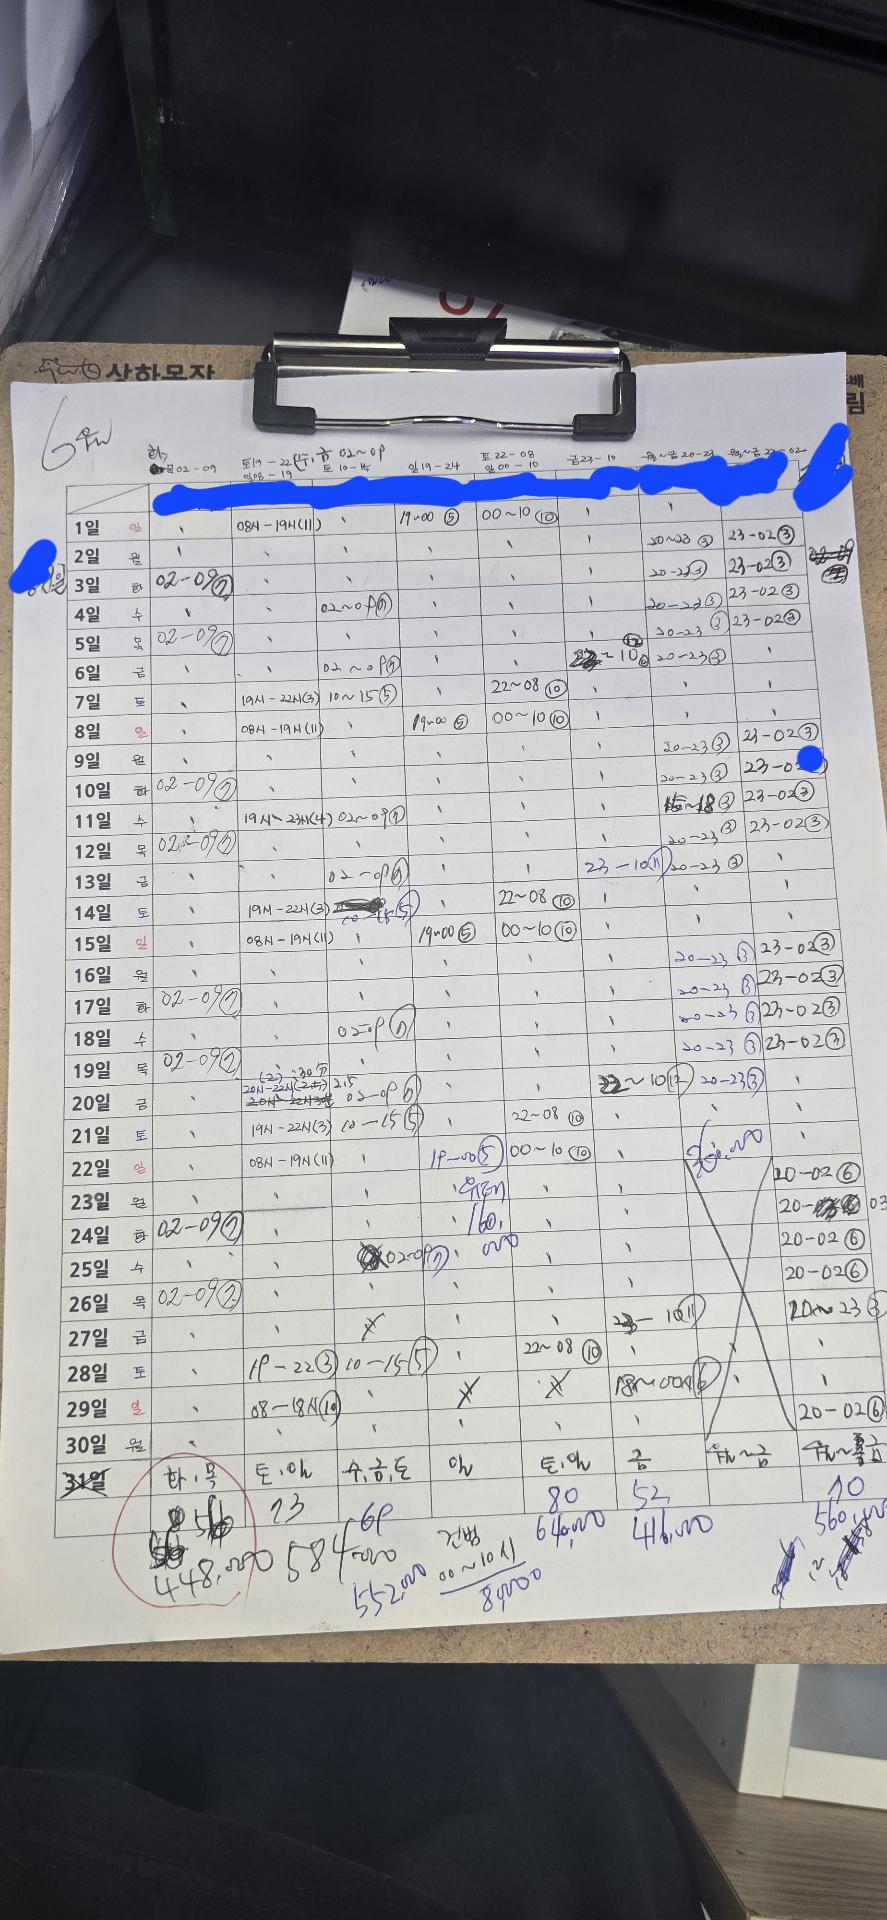 상하목장
6월
화, 목 02-09
토19-22 일08-19
수, 금 02~09 토 10-15
일 19-24
토 22-08 일 00-10
금 23-10
월~금 20-23
월~금 23-02
1일 일 08시-19시(11) 19~00 ⑤ 00~10 ⑩
2일 월 20~23 ③ 23-02 ③
3일 화 02-09 ⑦ 20-23 ③ 23-02 ③
4일 수 02~09 ⑦ 20-23 ③ 23-02 ③
5일 목 02-09 ⑦ 20-23 ③ 23-02 ③
6일 금 02~09 ⑦ ~10 ⑫ 20-23 ③
7일 토 19시-22시(3) 10~15 ⑤ 22~08 ⑩
8일 일 08시-19시(11) 19~00 ⑤ 00~10 ⑩
9일 월 20-23 ③ 23-02 ③
10일 화 02-09 ⑦ 20-23 ③ 23-0
11일 수 19시~23시(4) 02~09 ⑦ 15~18 ③ 23-02 ③
12일 목 02-09 ⑦ 20-23 ③ 23-02 ③
13일 금 02-09 ⑦ 23-10 ⑪ 20-23 ③
14일 토 19시-22시(3) 10-15 ⑤ 22~08 ⑩
15일 일 08시-19시(11) 19~00 ⑤ 00~10 ⑩
16일 월 20-23 ③ 23-02 ③
17일 화 02-09 ⑦ 20-23 ③ 23-02 ③
18일 수 02-09 ⑦ 20-23 ③ 23-02 ③
19일 목 02-09 ⑦ 20-23 ③ 23-02 ③
20일 금 20시-22시 2.5 02-09 ⑦ 22~10 ⑫ 20-23 ③
21일 토 19시-22시(3) 10-15 ⑤ 22~08 ⑩
22일 일 08시-19시(11) 19-00 ⑤ 00~10 ⑩
23일 월 20-02 ⑥
24일 화 02-09 ⑦ 160,000 20- 03
25일 수 02-09 ⑦ 20-02 ⑥
26일 목 02-09 ⑦ 20-02 ⑥
27일 금 X 23-10 ⑪ 20~23 ③
28일 토 19-22 ③ 10-15 ⑤ 22~08 ⑩
29일 일 08-18시 ⑩ X X 18~00시 ⑥
30일 월 20-02 ⑥
31일 화, 목 토, 일 수, 금, 토 일 토, 일 금 월~금 월~금
56 73 69 80 52 70
448,000 584,000 552,000 640,000 416,000 560,000
00~10시
80,000